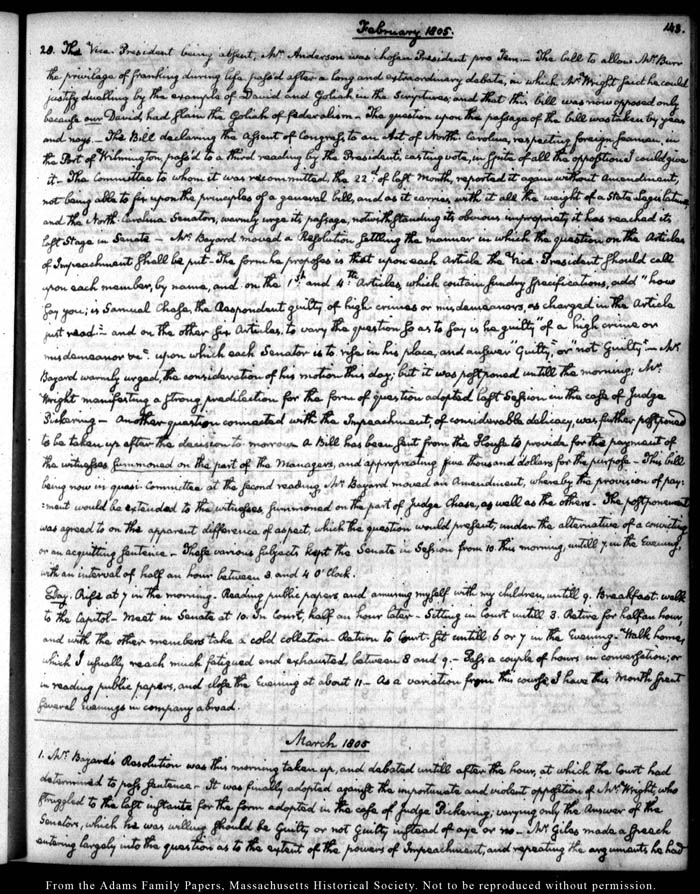 February 1805.
143.
28. The Vice-President being absent, Mr. Anderson was chosen President pro Tem — The bill to allow Mr. Burr
the privilege of franking during life, pass'd after a long and extraordinary debate, in which Mr. Wright said he could
justify duelling by the example of David and Goliah in the Scriptures, and that this bill was now opposed only
because our David had slain the Goliah of federalism — The question upon the passage of the bill was taken by yeas
and nays — The Bill declaring the assent of Congress, to an Act of North-Carolina, respecting foreign seamen, in
the Port of Wilmington, pass'd to a third reading by the President's casting vote, in spite of all the opposition I could give
it — The Committee to whom it was recommitted, the 22d of last Month, reported it again without Amendment,
not being able to fix upon the principles of a general bill, and as it carries with it all the weight of a State Legislature
and the North-Carolina Senators, warmly urge its passage, notwithstanding its obvious impropriety it has reached its
last Stage in Senate — Mr. Bayard moved a Resolution settling the manner in which the question on the Articles
of Impeachment shall be put — The form he proposes is that upon each Article the Vice-President should call
upon each member, by name, and on the 1st and 4th Articles, which contain sundry specifications, add "how
say you; is Samuel Chase, the Respondent guilty of high crimes or misdemeanors, as charged in the Article
just read" — and on the other six Articles, to vary the question so as to say is he guilty "of a high crime or
misdemeanor &c" upon which each Senator is to rise in his place, and answer "Guilty," or "not Guilty" — Mr.
Bayard warmly urged, the consideration of his motion this day; but it was postponed untill the morning; Mr.
Wright manifesting a strong predilection for the form of question adopted last Session in the case of Judge
Pickering — Another question connected with the Impeachment, of considerable delicacy, was further postponed
to be taken up after the decision to morrow. A Bill has been sent from the House to provide for the payment of
the witnesses summoned on the part of the Managers, and appropriating five thousand dollars for the purpose — This bill
being now in quasi-Committee at the second reading, Mr. Bayard moved an Amendment, whereby the provision of pay-
ment would be extended to the witnesses summoned on the part of Judge Chase, as well as the others — The postponement
was agreed to on the apparent difference of aspect, which the question would present, under the alternative of a convicting
or an acquitting sentence — These various subjects kept the Senate in Session from 10 this morning, untill 7, in the Evening,
with an interval of half an hour between 3 and 4 O'Clock.
Day. Rise at 7 in the morning. Reading public papers, and amusing myself with my children, untill 9. Breakfast. walk
to the Capitol — Meet in Senate at 10. In Court, half an hour later — Sitting in Court untill 3. Retire for half an hour,
and with the other members take a cold collation. Return to Court. Sit untill 6 or 7 in the Evening. Walk home,
which I usually reach much fatigued and exhausted, between 8 and 9. — Pass a couple of hours in conversation; or
in reading public papers, and close the Evening at about 11 — As a variation from this course I have this Month spent
several evenings in company abroad.
March 1805
1. Mr. Bayard's Resolution was this morning taken up, and debated untill after the hour, at which the Court had
determined to pass sentence — It was finally adopted against the importunate and violent opposition of Mr. Wright, who
struggled to the last instant for the form adopted in the case of Judge Pickering, varying only the Answer of the
Senators, which he was willing should be Guilty or not Guilty instead of aye or no — Mr. Giles made a speech
entering largely into the question as to the extent of the powers of Impeachment, and repeating the arguments he had
From the Adams Family Papers, Massachusetts Historical Society. Not to be reproduced without permission.